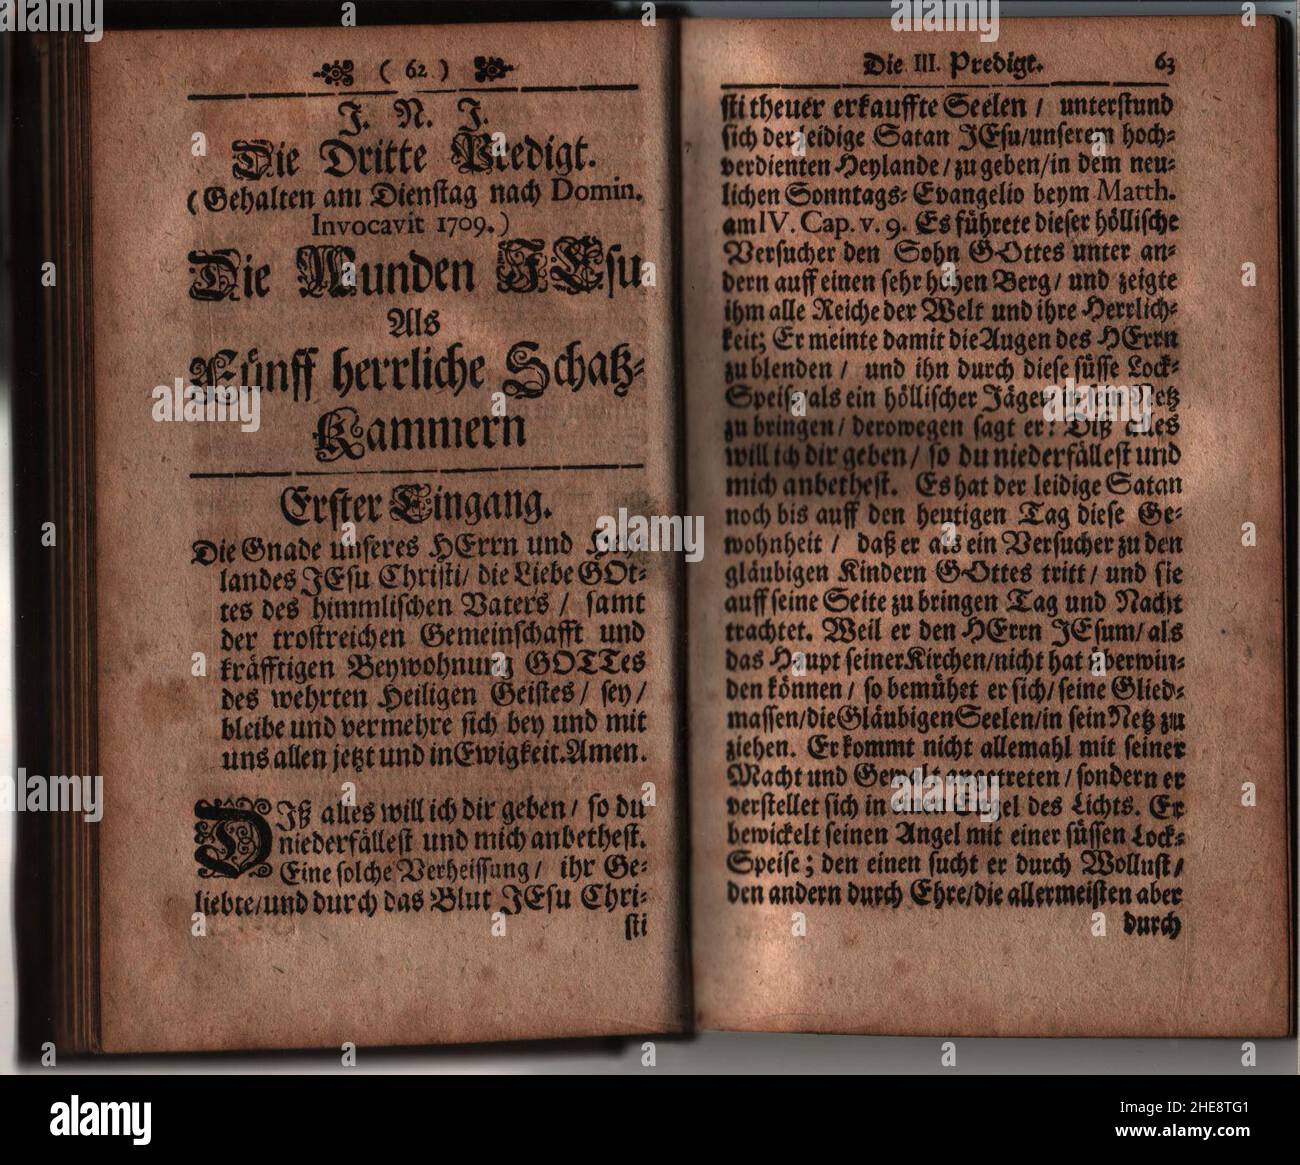 ( 62 )
J. N. J.
Die Dritte Predigt.
(Gehalten am Dienstag nach Domin.
Invocavit 1709.)
Die Wunden JEsu
Als
Fünff herrliche Schatz-
Kammern
Erster Eingang.
Die Gnade unseres HErrn und Hey-
landes JEsu Christi/ die Liebe GOt-
tes des himmlischen Vaters / samt
der trostreichen Gemeinschafft und
kräfftigen Beywohnung GOTTes
des wehrten Heiligen Geistes/ sey/
bleibe und vermehre sich bey und mit
uns allen jetzt und in Ewigkeit. Amen.
DIß alles will ich dir geben/ so du
niederfällest und mich anbethest.
Eine solche Verheissung/ ihr Ge-
liebte/und durch das Blut JEsu Chri-
sti
Die III. Predigt. 63
sti theuer erkauffte Seelen / unterstund
sich der leidige Satan JEsu/unserem hoch-
verdienten Heylande/zu geben/in dem neu-
lichen Sonntags-Evangelio beym Matth.
am IV. Cap. v. 9. Es führete dieser höllische
Versucher den Sohn GOttes unter an-
dern auff einen sehr hohen Berg/ und zeigte
ihm alle Reiche der Welt und ihre Herrlich-
keit; Er meinte damit die Augen des HErrn
zu blenden / und ihn durch diese süsse Lock-
Speise/als ein höllischer Jäger/in sein Netz
zu bringen/ derowegen sagt er: Diß alles
will ich dir geben/ so du niederfällest und
mich anbethest. Es hat der leidige Satan
noch bis auff den heutigen Tag diese Ge-
wohnheit / daß er als ein Versucher zu den
gläubigen Kindern GOttes tritt/ und sie
auff seine Seite zu bringen Tag und Nacht
trachtet. Weil er den HErrn JEsum/als
das Haupt seiner Kirchen/nicht hat überwin-
den können/ so bemühet er sich/ seine Glied-
massen/die Gläubigen Seelen/in sein Netz zu
ziehen. Er kommt nicht allemahl mit seiner
Macht und Gewalt angetreten/sondern er
verstellet sich in einen Engel des Lichts. Er
bewickelt seinen Angel mit einer süssen Lock-
Speise; den einen sucht er durch Wollust/
den andern durch Ehre/die allermeisten aber
durch
alamy
Image ID: 2HE8TG1
www.alamy.com